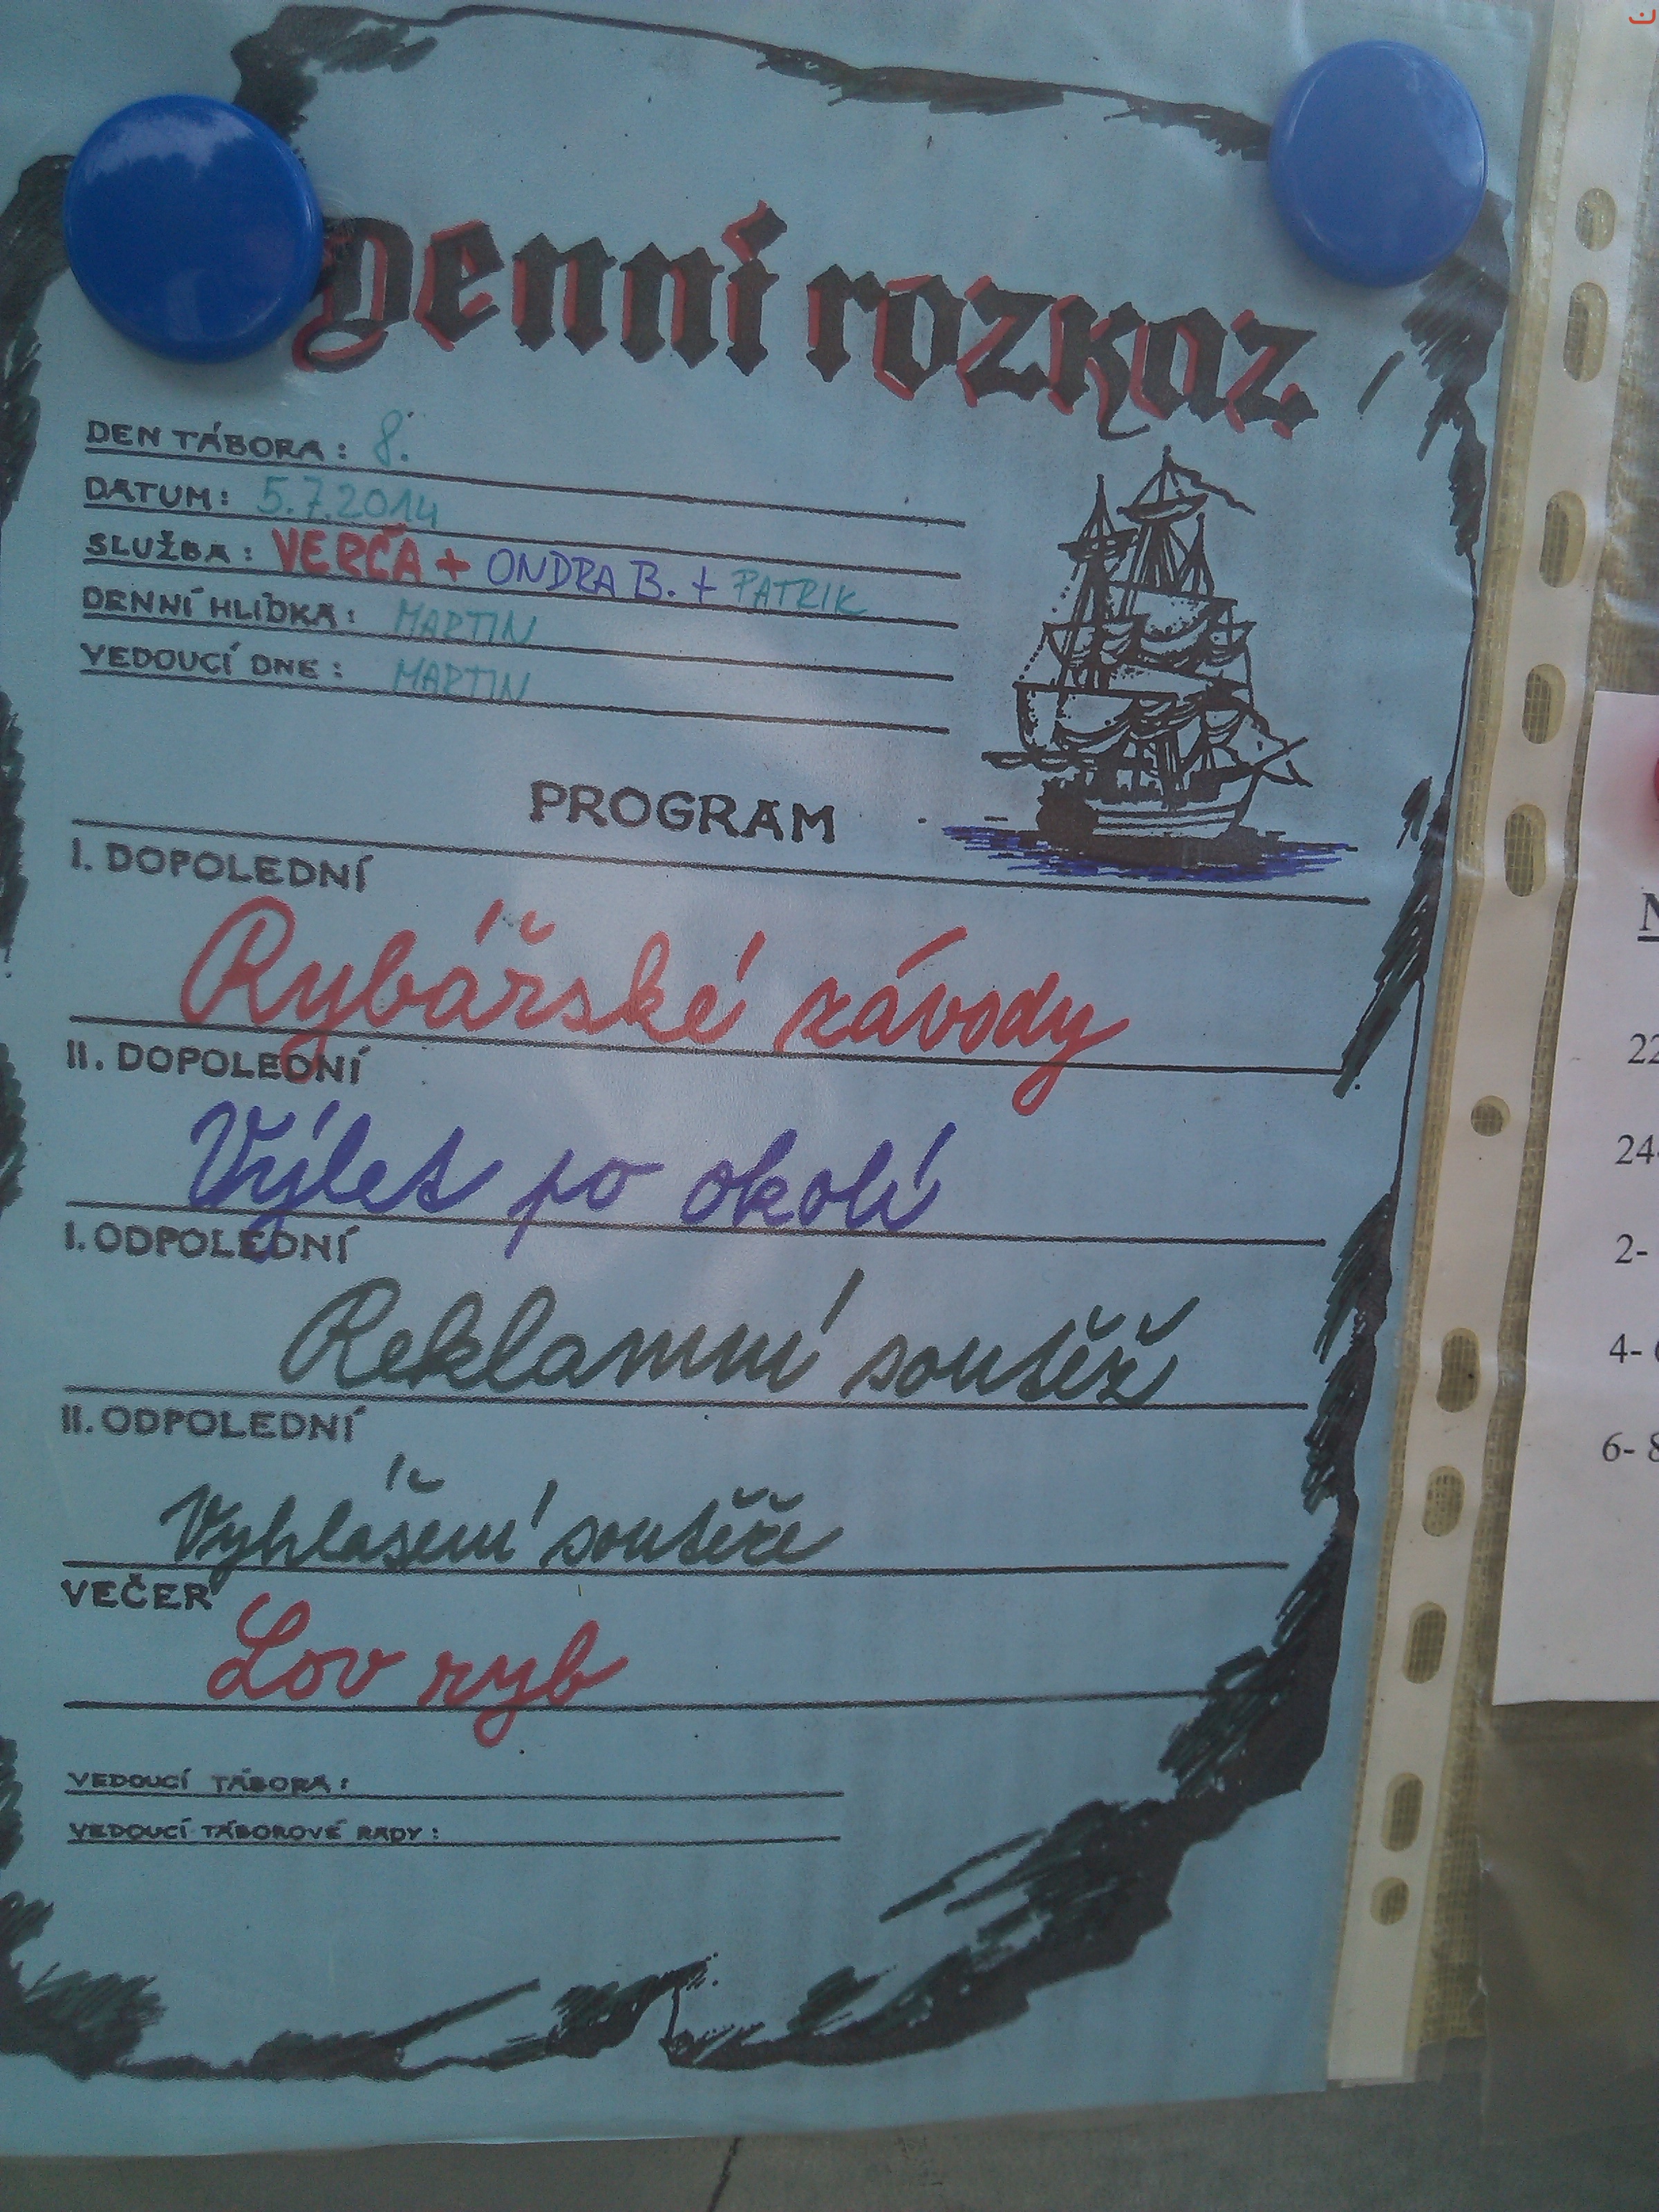 Denní rozkaz
DEN TÁBORA: 8.
DATUM: 5.7.2014
SLUŽBA: VERČA + ONDRA B. + PATRIK
DENNÍ HLÍDKA: MARTIN
VEDOUCÍ DNE: MARTIN
PROGRAM
I. DOPOLEDNÍ
Rybářské závody
II. DOPOLEDNÍ
Výlet po okolí
I. ODPOLEDNÍ
Reklamní soutěž
II. ODPOLEDNÍ
Vyhlášení soutěže
VEČER
Lov ryb
VEDOUCÍ TÁBORA:
VEDOUCÍ TÁBOROVÉ RADY:
22
24
2-
4-
6- 8